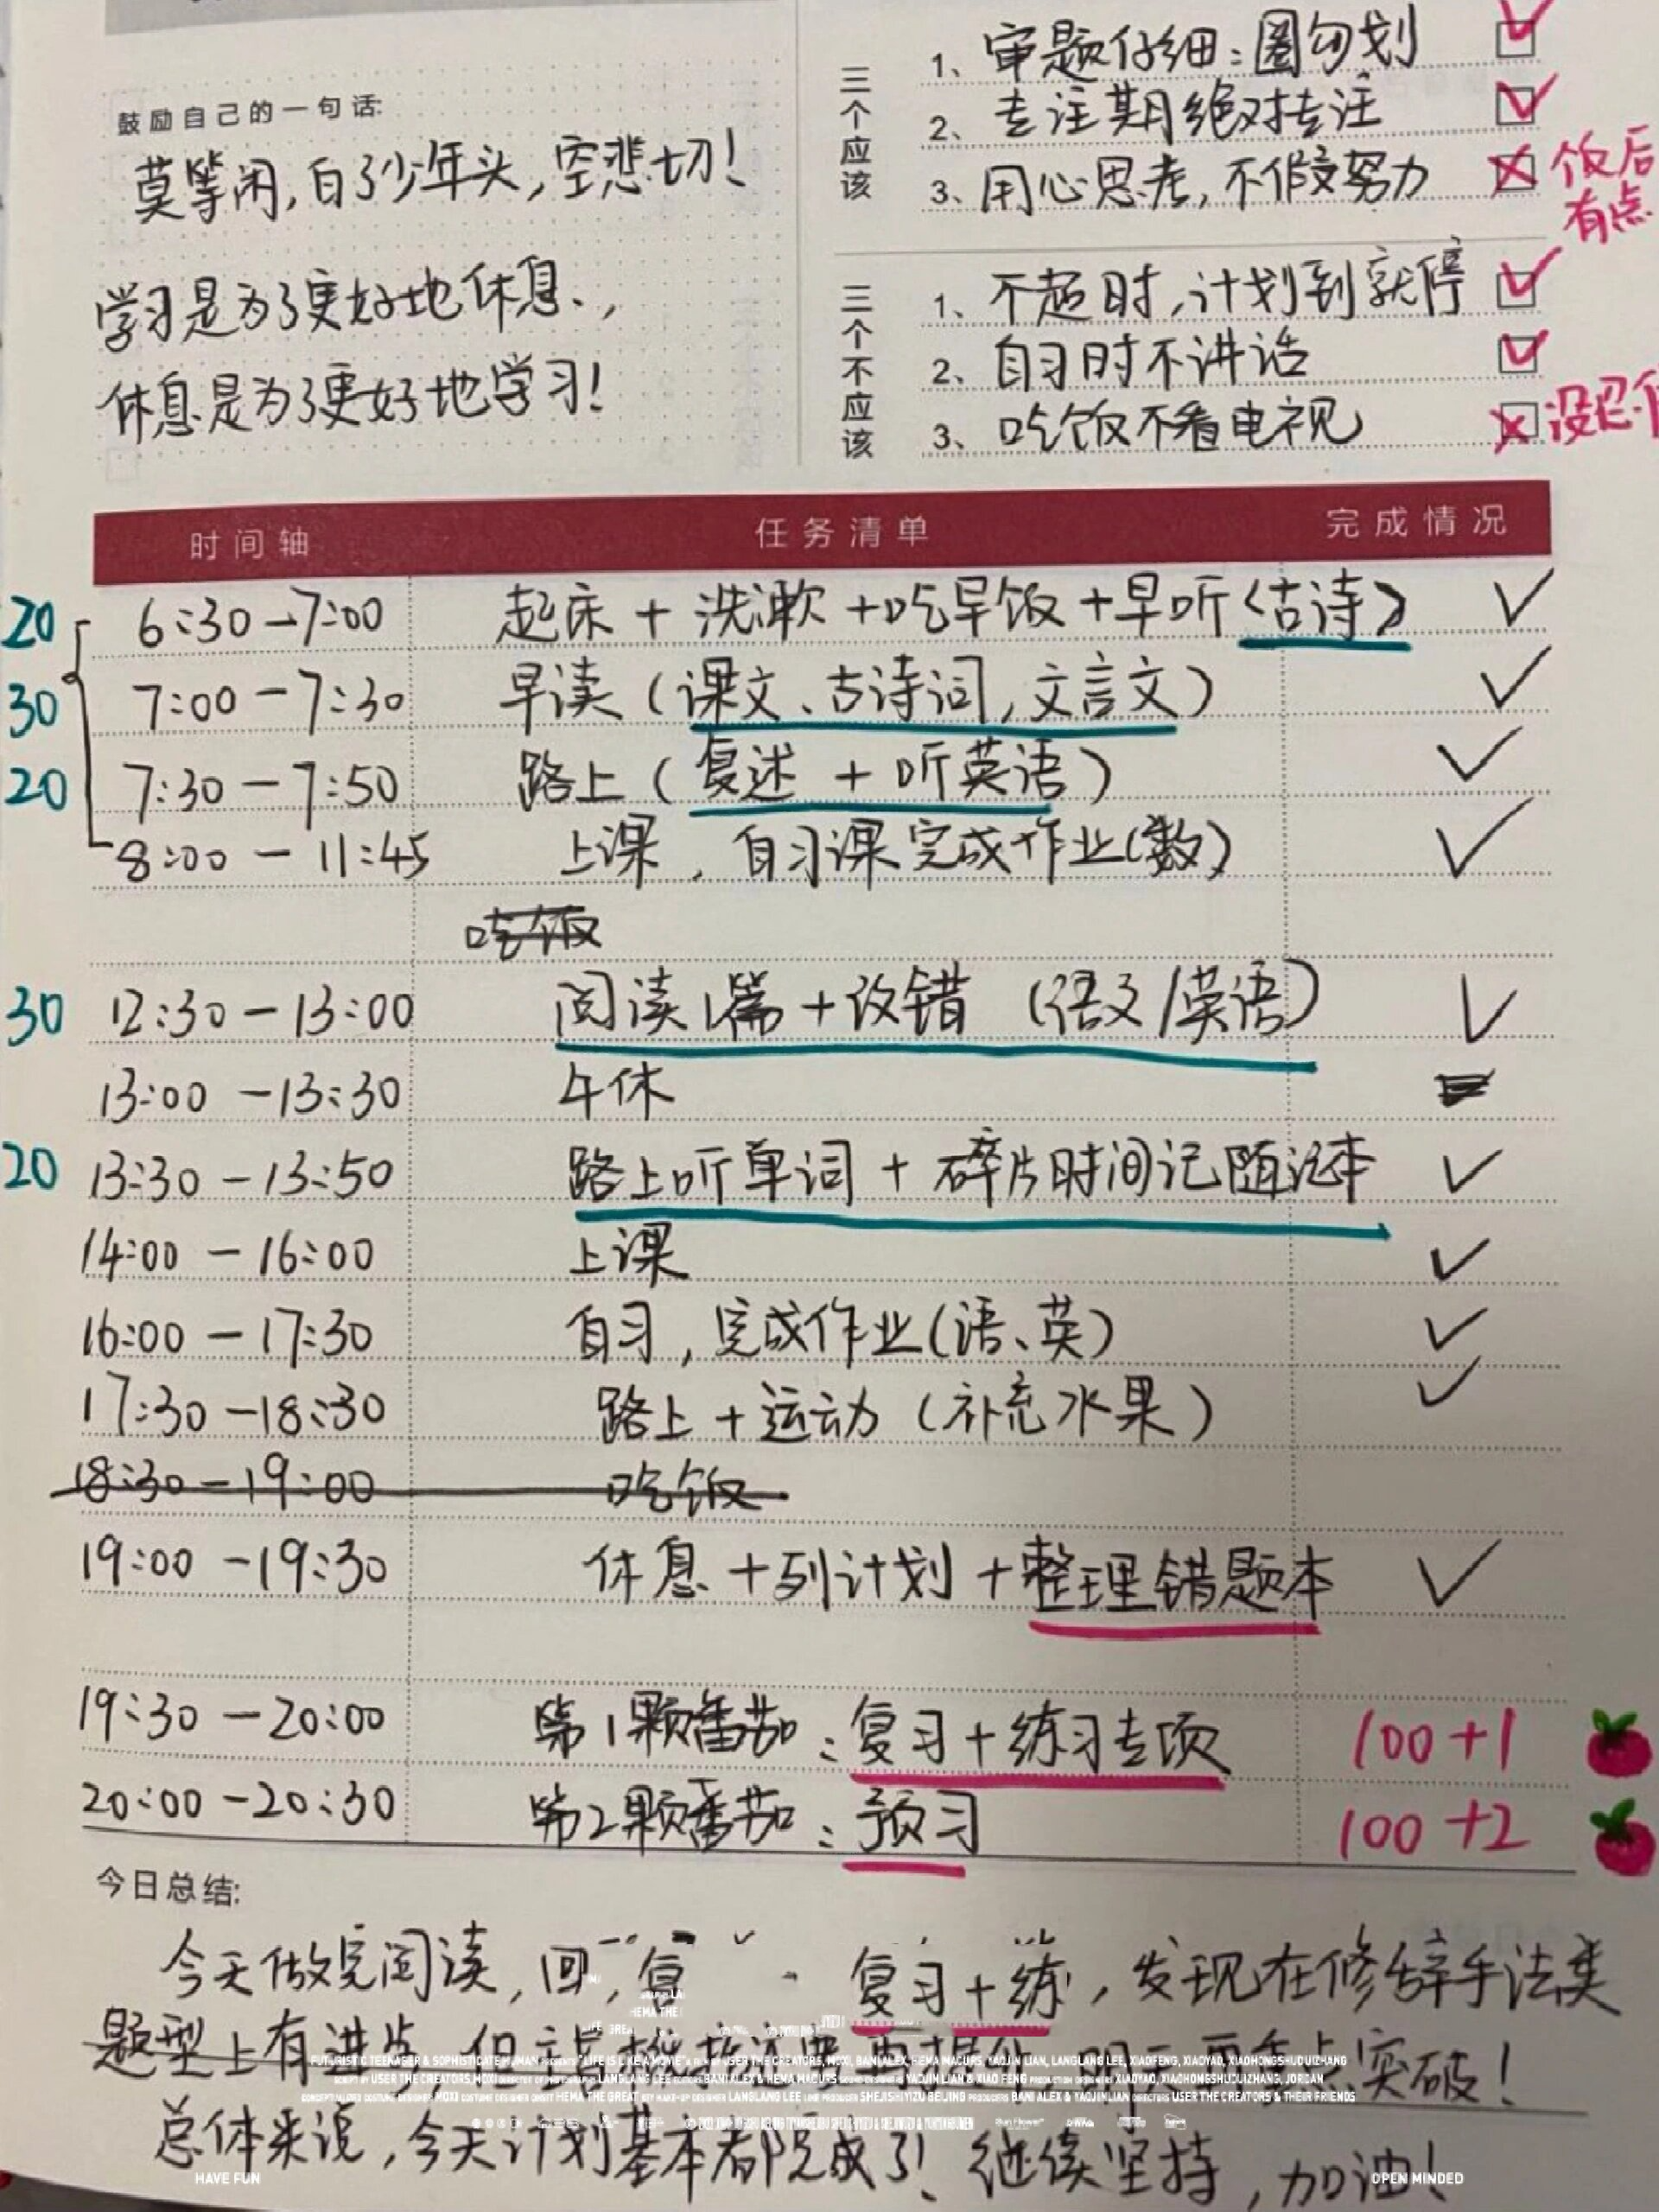 鼓励自己的一句话:
莫等闲,白了少年头,空悲切!
学习是为了更好地休息,
休息是为了更好地学习!
三个应该
1、审题仔细:圈勾划
2、专注期绝对专注
3、用心思考,不假努力
饭后
有点
三个不应该
1、不超时,计划到就停
2、自习时不讲话
3、吃饭不看电视
没忍
时间轴 任务清单 完成情况
20 6:30-7:00 起床+洗漱+吃早饭+早听<古诗> ✓
30 7:00-7:30 早读(课文、古诗词,文言文) ✓
20 7:30-7:50 路上(复述+听英语) ✓
8:00-11:45 上课,自习课完成作业(数) ✓
吃饭
30 12:30-13:00 阅读1篇+改错(语文/英语) ✓
13:00-13:30 午休
20 13:30-13:50 路上听单词+碎片时间记随记本 ✓
14:00-16:00 上课 ✓
16:00-17:30 自习,完成作业(语、英) ✓
17:30-18:30 路上+运动(补充水果) ✓
18:30-19:00 吃饭
19:00-19:30 休息+列计划+整理错题本 ✓
19:30-20:00 第1颗番茄:复习+练习专项 100+1
20:00-20:30 第2颗番茄:预习 100+2
今日总结:
今天做完阅读,回,复 复习+练,发现在修辞手法类
题型上有进步 突破!
FUTURISTIC TEENAGER & SOPHISTICATE HUMAN PRESENTS "LIFE IS LIKE A MOVIE" A FILM BY USER THE CREATORS, MOXI, BANI ALEX, HEMA MACURS, YAOJIN LIAN, LANGLANG LEE, XIAOFENG, XIAOYAO, XIAOHONGSHUDUIZHANG
SCRIPT BY USER THE CREATORS, MOXI LANGLANG LEE BANI ALEX & HEMA MACURS YAOJIN LIAN & XIAO FENG XIAOYAO, XIAOHONGSHUDUIZHANG, JORDAN
MOXI HEMA THE GREAT LANGLANG LEE SHEJISHIYIZU BEIJING PRODUCERS BANI ALEX & YAOJIN LIAN DIRECTORS USER THE CREATORS & THEIR FRIENDS
总体来说,今天计划基本都完成了!继续坚持,加油!
HAVE FUN OPEN MINDED